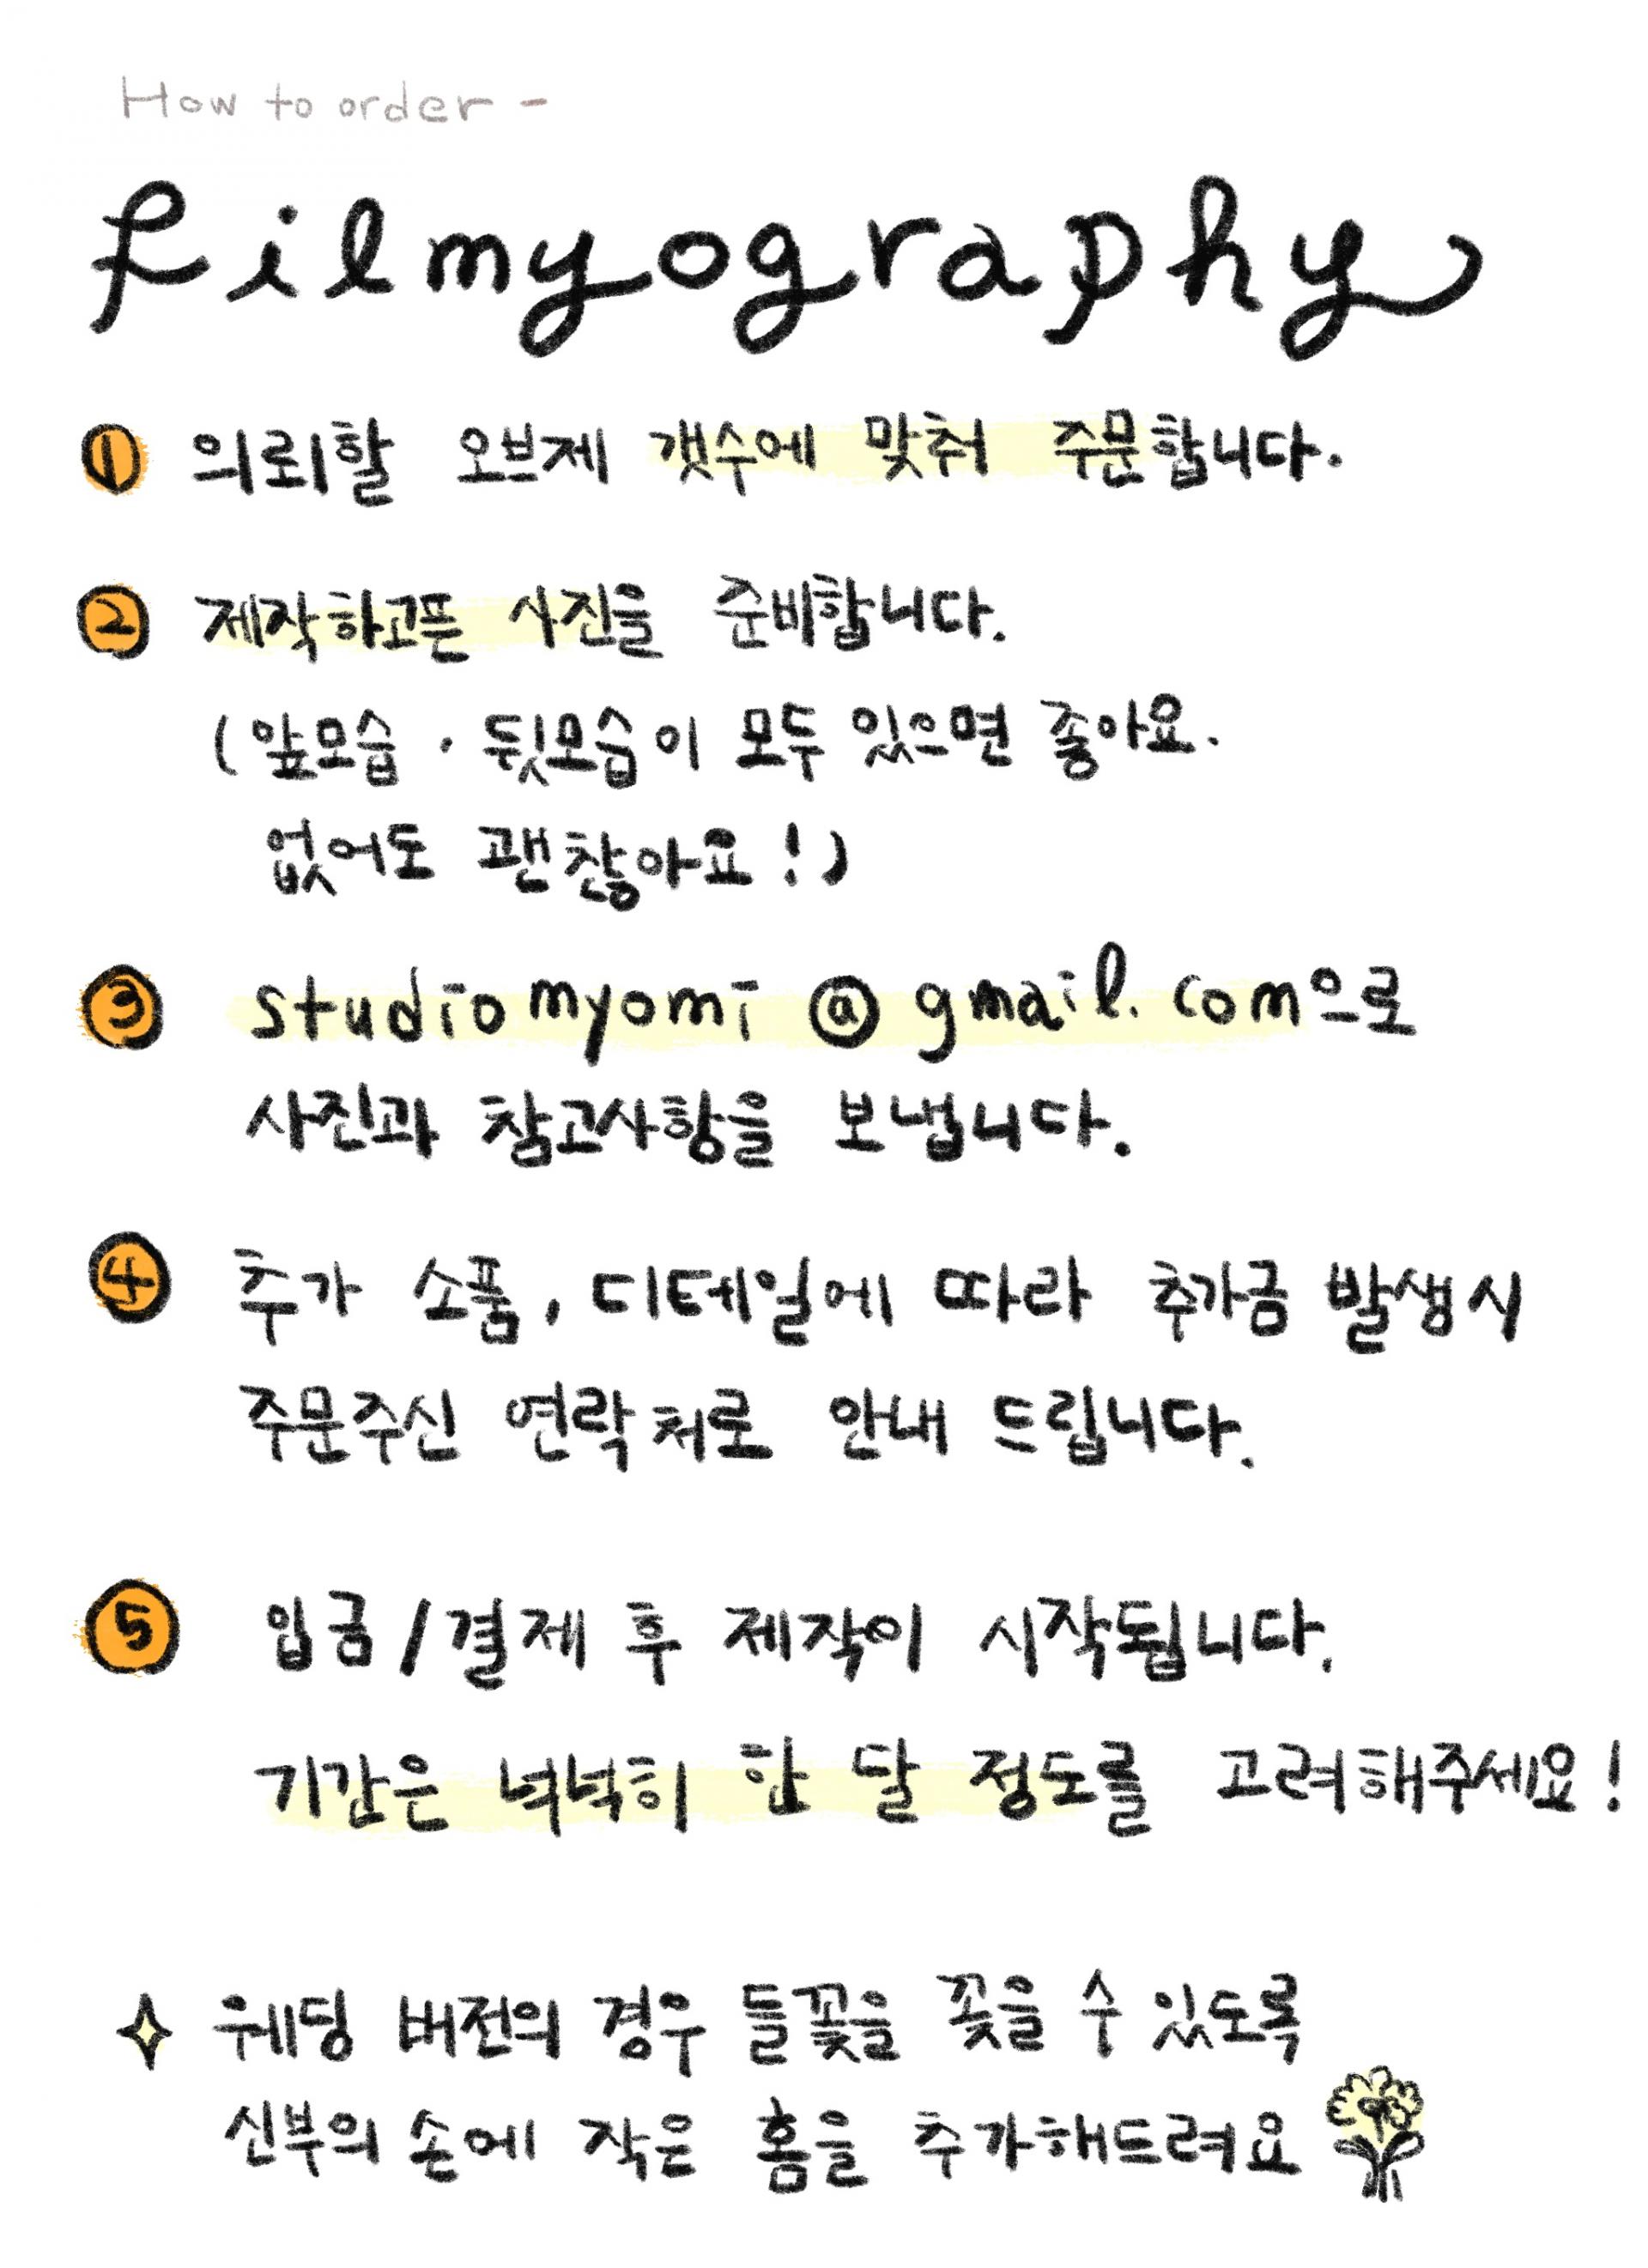 How to order -
filmyography
① 의뢰할 오브제 갯수에 맞춰 주문합니다.
② 제작하고픈 사진을 준비합니다.
(앞모습 · 뒷모습이 모두 있으면 좋아요.
없어도 괜찮아요!)
③ studiomyomi@gmail.com으로
사진과 참고사항을 보냅니다.
④ 추가 소품, 디테일에 따라 추가금 발생시
주문주신 연락처로 안내 드립니다.
⑤ 입금/결제 후 제작이 시작됩니다.
기간은 넉넉히 한 달 정도를 고려해주세요!
✧ 웨딩 버전의 경우 들꽃을 꽂을 수 있도록
신부의 손에 작은 홈을 추가해드려요